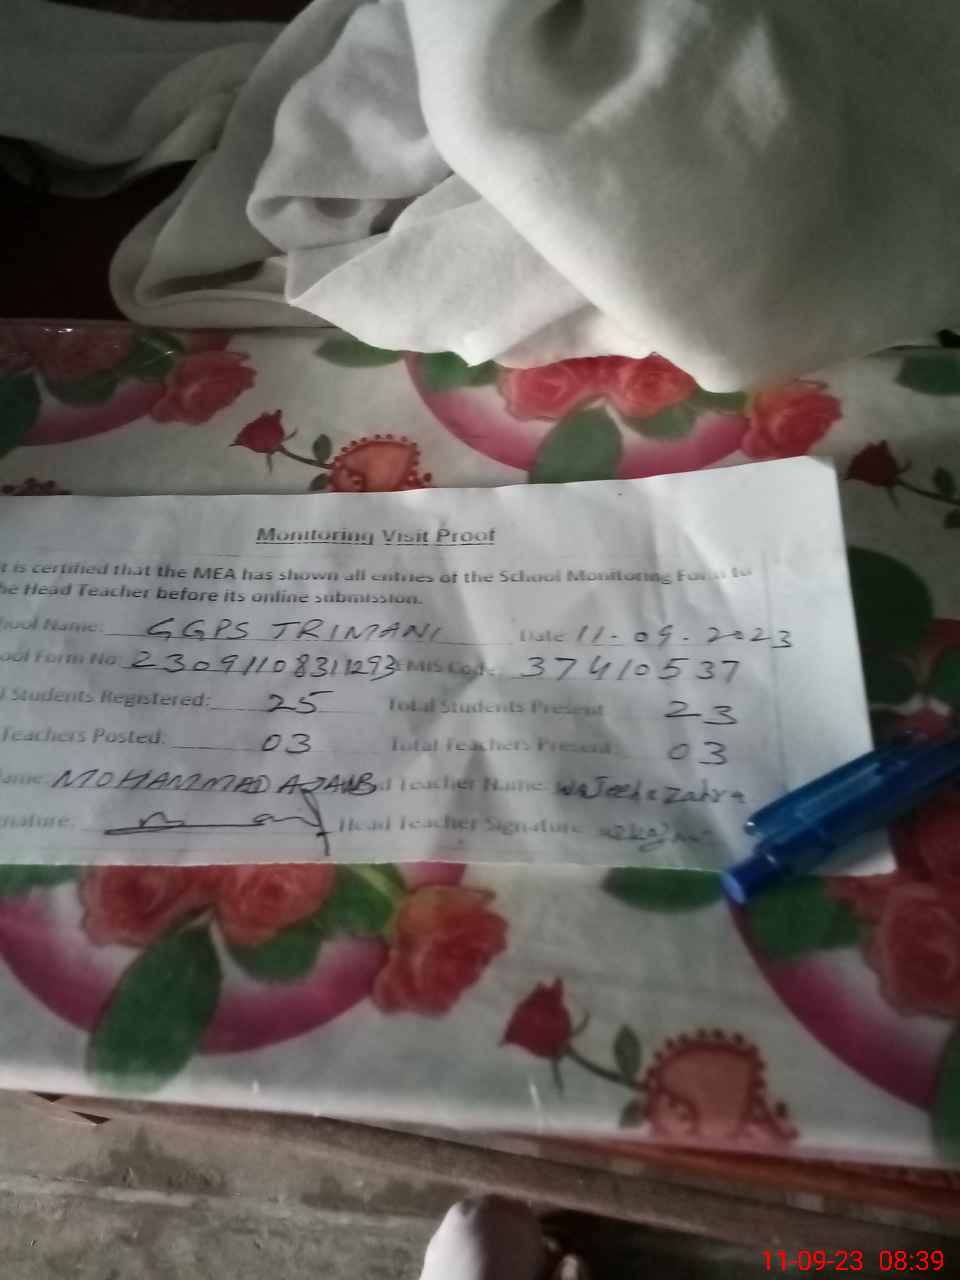 Monitoring Visit Proof
t is certified that the MEA has shown all entries of the School Monitoring Form to
he Head Teacher before its online submission.
hool Name: GGPS TRIMANI Date 11-09-2023
ool Form No: 23091108311293 EMIS Code: 37410537
l Students Registered: 25 Total Students Present 23
Teachers Posted: 03 Total Teachers Present: 03
ame: MOHAMMAD d Teacher Name: Wajeeha Zahra
nature: Head Teacher Signature
11-09-23 08:39